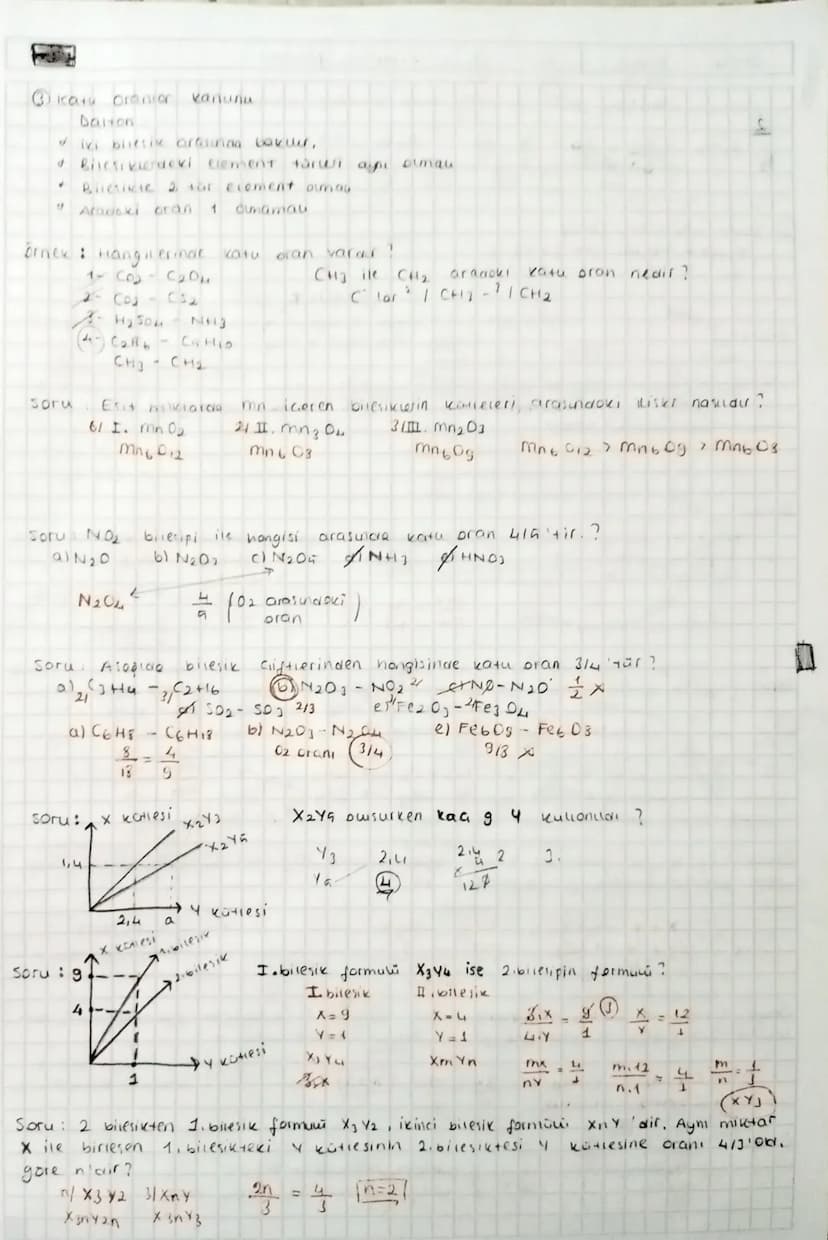 ③ Katlı oranlar kanunu
Dalton
" İki bileşik arasında bakılır.
" Bileşiklerdeki element türleri aynı olmalı
" Bileşikte 2 tür element olmalı
" Aradaki oran 1 olmamalı
Örnek : Hangilerinde katlı oran vardır?
1- CO2 - C2O4
CH3 ile CH2 aradaki katlı oran nedir?
2- CO2 - CS2
3- H2SO4 - NH3
4- C2H6 - C4H10
CH3 - CH2
Soru : Eşit miktarda Mn içeren bileşiklerin kütleleri arasındaki ilişki nasıldır?
6/ I. MnO2 2/ II. Mn3O4 3/ III. Mn2O3
Mn6O12 Mn6O8 Mn6O9 Mn6O12 > Mn6O9 > Mn6O8
Soru : NO2 bileşiği ile hangisi arasında katlı oran 4/5'tir.?
a) N2O b) N2O3 c) N2O5 d) NH3 e) HNO3
N2O4 4/5 (O2 arasındaki oran)
Soru : Aşağıda bileşik çiftlerinden hangisinde katlı oran 3/4'tür?
a) 2/ C3H4 - 3/ C2H6 b) N2O3 - NO2 2/ c) NO - N2O 1/2 x
d) SO2 - SO3 2/3 e) Fe2O3 - Fe3O4
a) C6H8 - C6H18 b) N2O3 - N2O4 e) Fe6O9 - Fe6O8
8/18 = 4/9 O2 oranı 3/4 9/8 x
Soru : X kütlesi X2Y3 X2Y5 X2Y5 oluşurken kaç g Y kullanılır?
1,4
2,4 a Y kütlesi
Y3 2,4
Y5 4
Soru : X kütlesi 1.bileşik 2.bileşik
9
4
1 Y kütlesi
I. bileşik formülü X3Y4 ise 2.bileşiğin formülü?
I. bileşik II. bileşik
X=9 X=4 3.X/4.Y = 9/1 X/Y = 12/1
Y=1 Y=1
X3Y4 XmYn mX/nY = 4/1 m.12/n.1 = 4/1 m/n = 1/3
XY3
Soru : 2 bileşikten 1.bileşik formülü X3Y2, ikinci bileşik formülü XnY'dir. Aynı miktar
X ile birleşen 1.bileşikteki Y kütlesinin 2.bileşiktesi Y kütlesine oranı 4/3'old.
göre n'dir?
n/ X3Y2 3/ XnY 2n/3 = 4/3 n=2
X3nY2n X3nY3